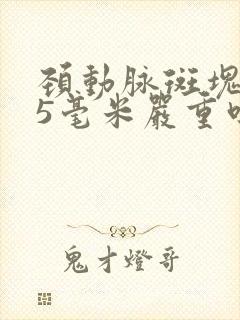 頚動脉斑塊
5毫米嚴重
鬼才燈哥